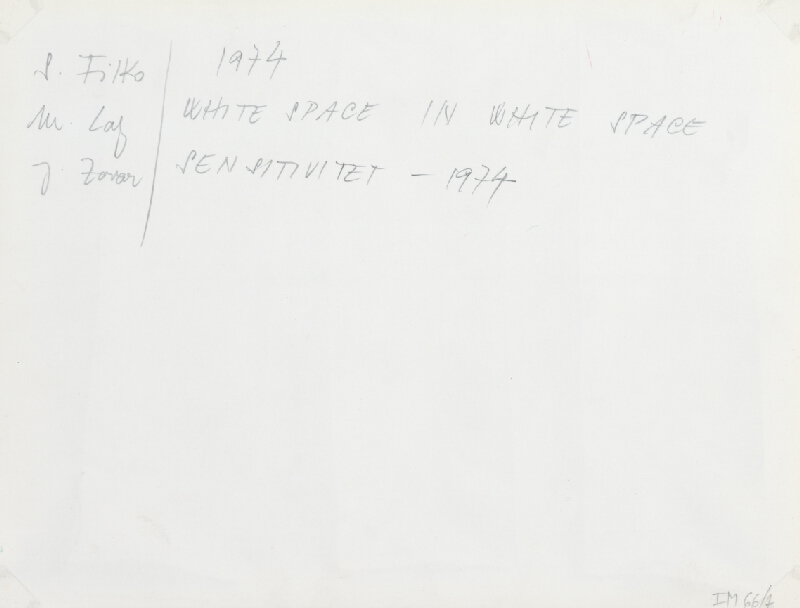 S. Filko
M. Laj
J Zavar
1974
WHITE SPACE IN WHITE SPACE
SENSITIVITET – 1974
IM 66/1